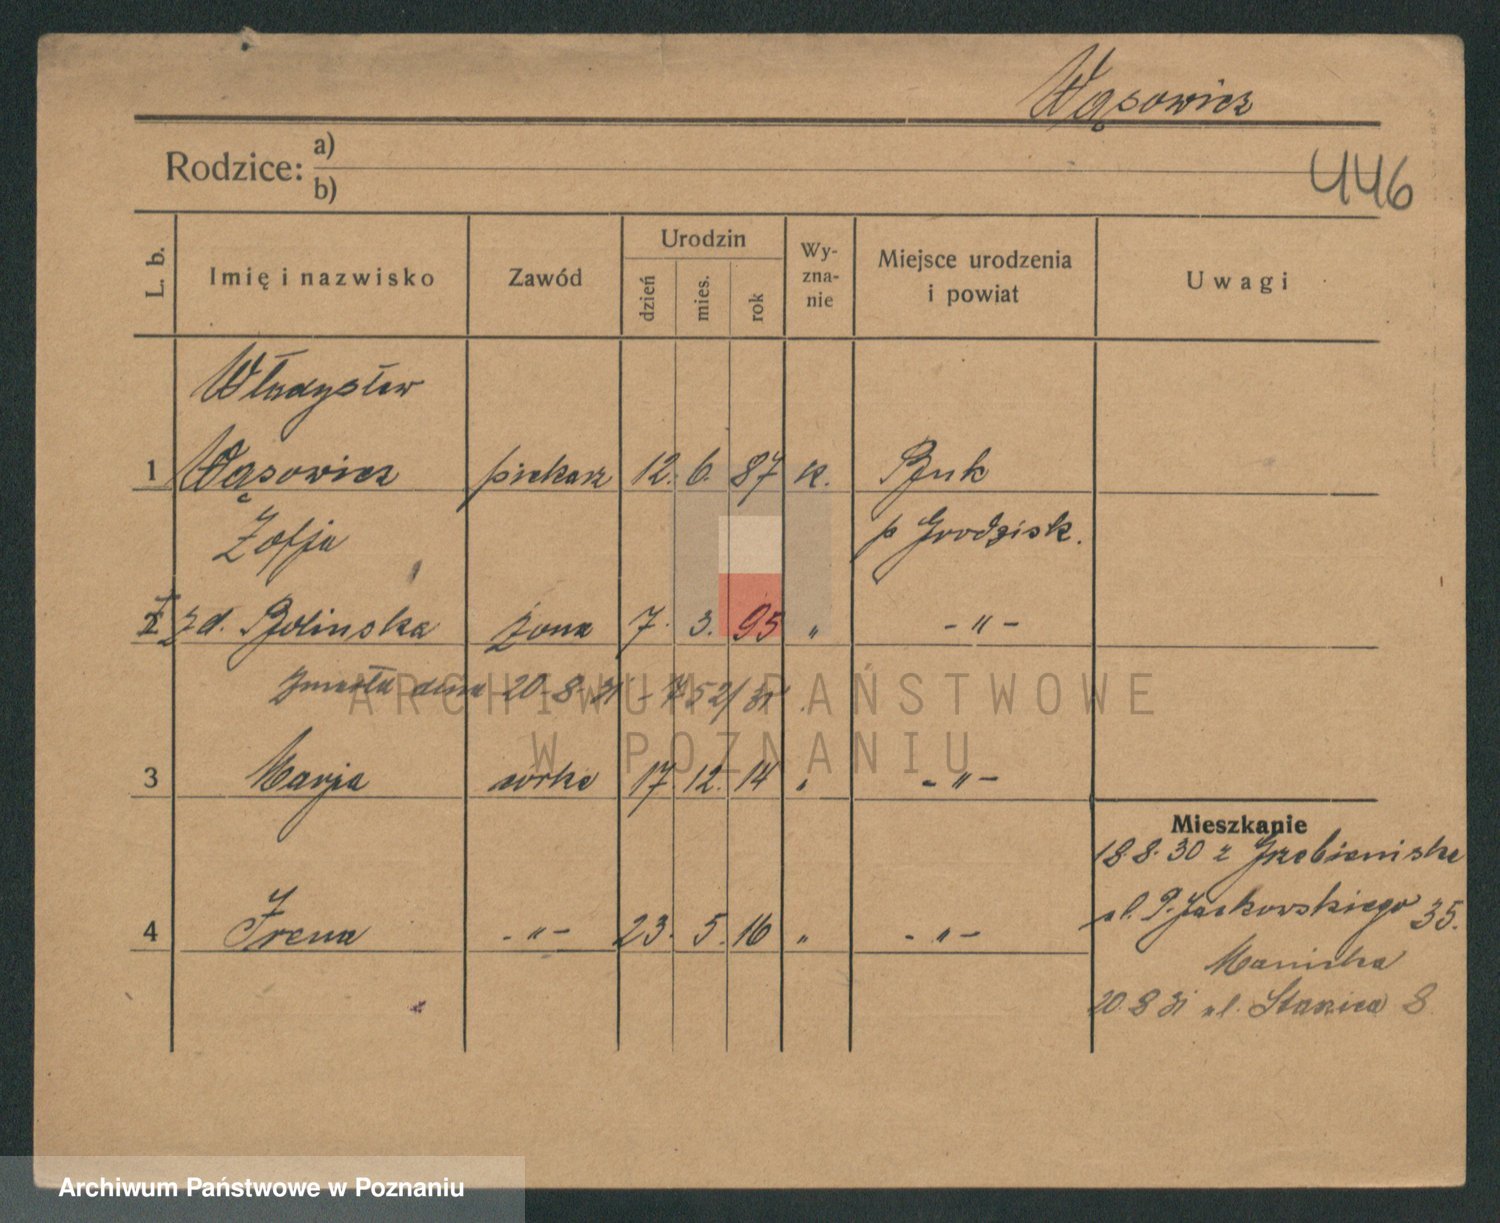 Wąsowicz
Rodzice: a)
b)
446
L. b. Imię i nazwisko Zawód Urodzin dzień mies. rok Wy-zna-nie Miejsce urodzenia i powiat Uwagi
Władysław
1 Wąsowicz piekarz 12. 6. 87 k. Buk
Zofja p Grodzisk.
2 zd. Bolinska żona 7. 3. 95 " - " -
Zmarła dnia 20-8-31 - 752/31
3 Marja córka 17 12. 14 " - " -
Mieszkanie
18.8.30 z Grzebieniska
ul. P. Jackowskiego 35.
4 Irena - " - 23. 5. 16 " - " -
20.8 31 ul. Staszica 8
ARCHIWUM PAŃSTWOWE
W POZNANIU
Archiwum Państwowe w Poznaniu